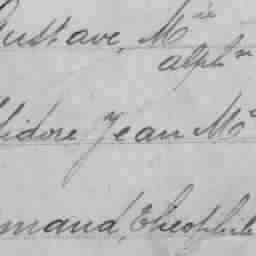 Gustave, Mie
alphse
Isidore Jean Mie
rmand, Théophile